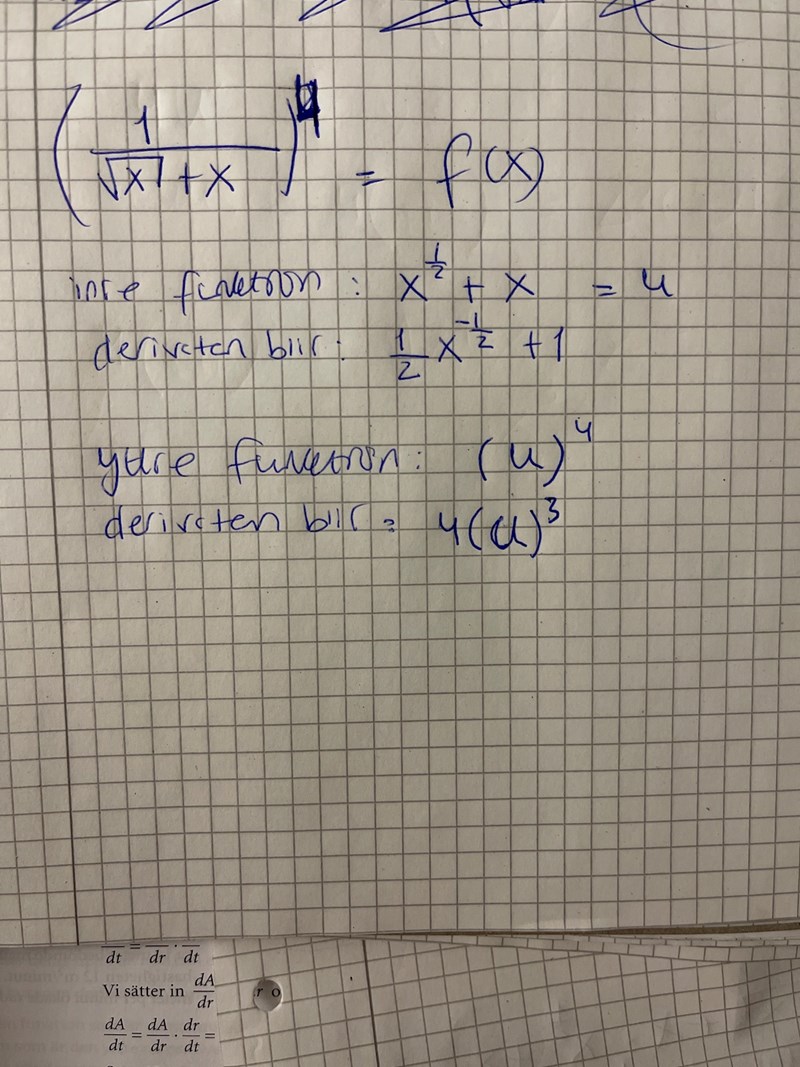 (1/(√x + x))^4 = f(x)
inre funktion: x^(1/2) + x = u
derivatan blir: 1/2 x^(-1/2) + 1
yttre funktion: (u)^4
derivatan blir = 4(u)^3
dt = dr · dt
Vi sätter in dA/dr
dA/dt = dA/dr · dr/dt =